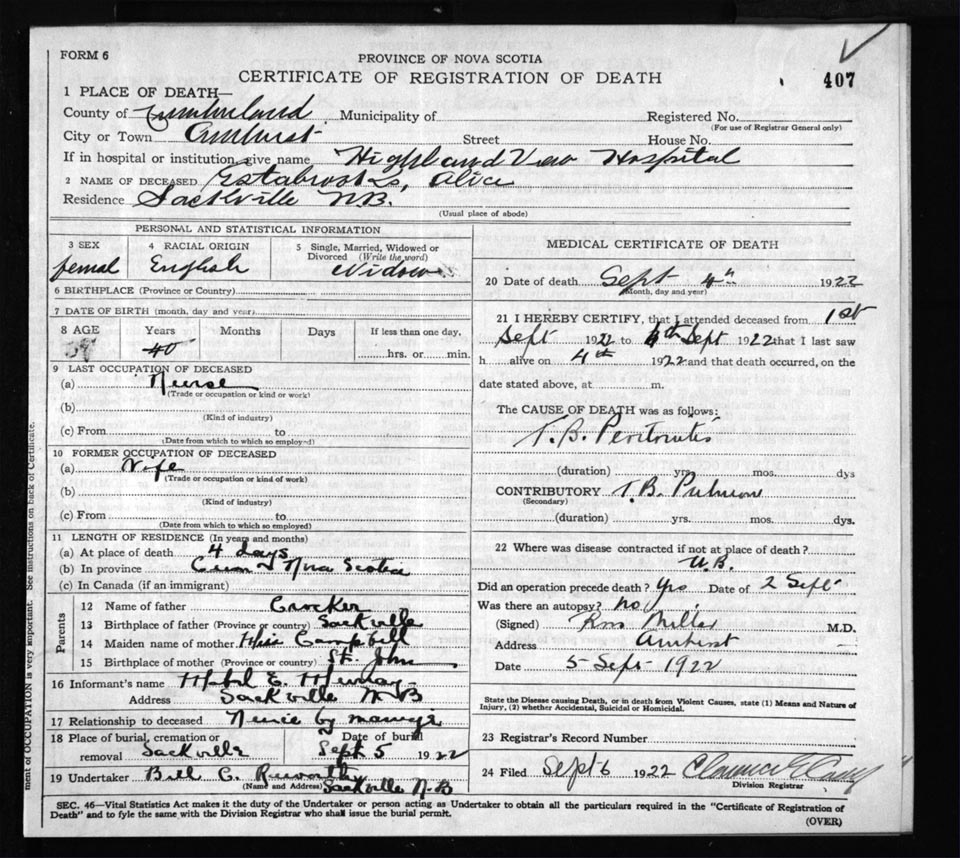 FORM 6
PROVINCE OF NOVA SCOTIA
CERTIFICATE OF REGISTRATION OF DEATH
407
1 PLACE OF DEATH—
County of Cumberland Municipality of Registered No.
(For use of Registrar General only)
City or Town Amherst Street House No.
If in hospital or institution, give name Highland View Hospital
2 NAME OF DECEASED Estabrooks, Alice
Residence Sackville N.B.
(Usual place of abode)
PERSONAL AND STATISTICAL INFORMATION
3 SEX 4 RACIAL ORIGIN 5 Single, Married, Widowed or Divorced (Write the word)
femal English Widow
6 BIRTHPLACE (Province or Country)
7 DATE OF BIRTH (month, day and year)
8 AGE Years Months Days If less than one day,
40 hrs. or min.
9 LAST OCCUPATION OF DECEASED
(a) Nurse
(Trade or occupation or kind or work)
(b)
(Kind of industry)
(c) From to
(Date from which to which so employed)
10 FORMER OCCUPATION OF DECEASED
(a) Wife
(Trade or occupation or kind of work)
(b)
(Kind of industry)
(c) From to
(Date from which to which so employed)
11 LENGTH OF RESIDENCE (In years and months)
(a) At place of death 4 days
(b) In province Nova Scotia
(c) In Canada (if an immigrant)
Parents
12 Name of father Crocker
13 Birthplace of father (Province or country) Sackville
14 Maiden name of mother Miss Campbell
15 Birthplace of mother (Province or country) St. John
16 Informant's name Mabel E. Murray
Address Sackville N B
17 Relationship to deceased Neice by marrige
18 Place of burial, cremation or removal Sackville Date of burial Sept 5 1922
19 Undertaker Bill C.
(Name and Address) Sackville N.B
MEDICAL CERTIFICATE OF DEATH
20 Date of death Sept 4th 1922
(Month, day and year)
21 I HEREBY CERTIFY, that I attended deceased from 1st
Sept 1922 to 4th Sept 1922 that I last saw
h alive on 4th 1922 and that death occurred, on the
date stated above, at m.
The CAUSE OF DEATH was as follows:
T.B. Peritonitis
(duration) yrs. mos. dys
CONTRIBUTORY T.B. Pulmon
(Secondary)
(duration) yrs. mos. dys.
22 Where was disease contracted if not at place of death?
N.B.
Did an operation precede death? Yes Date of 2 Sept
Was there an autopsy? no
(Signed) Ross Millar M.D.
Address Amherst
Date 5 Sept 1922
State the Disease causing Death, or in death from Violent Causes, state (1) Means and Nature of
Injury, (2) whether Accidental, Suicidal or Homicidal.
23 Registrar's Record Number
24 Filed Sept 6 1922 Clarence E.
Division Registrar
SEC. 46—Vital Statistics Act makes it the duty of the Undertaker or person acting as Undertaker to obtain all the particulars required in the "Certificate of Registration of
Death" and to fyle the same with the Division Registrar who shall issue the burial permit.
(OVER)
ment of OCCUPATION is very important. See instructions on back of Certificate.